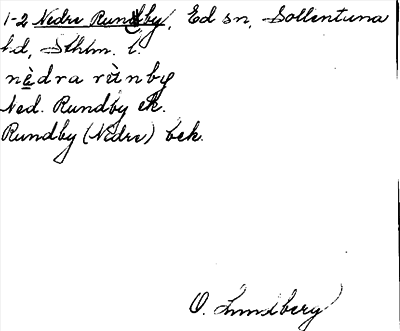 1-2 Nedre Rundby, Ed sn, Sollentuna
hd, Sthlm. l.
nèdra rùnby
Ned. Rundby ek.
Rundby (Nedre) bek.
O. Lundberg